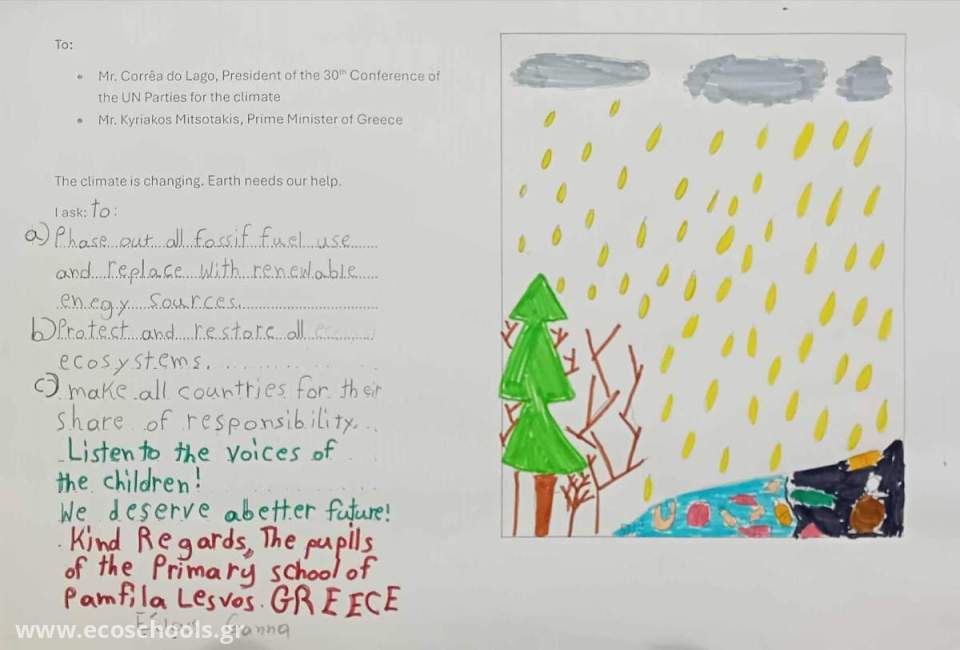 To:
• Mr. Corrêa do Lago, President of the 30th Conference of
the UN Parties for the climate
• Mr. Kyriakos Mitsotakis, Prime Minister of Greece
The climate is changing. Earth needs our help.
I ask: to:
a) Phase out all fossif fuel use
and replace with renewable
enegy sources.
b) Protect and restore all
ecosystems.
c) make all countries for their
share of responsibility.
Listen to the voices of
the children!
We deserve a better future!
Kind Regards, The pupils
of the Primary school of
Pamfila Lesvos. GREECE
www.ecoschools.gr